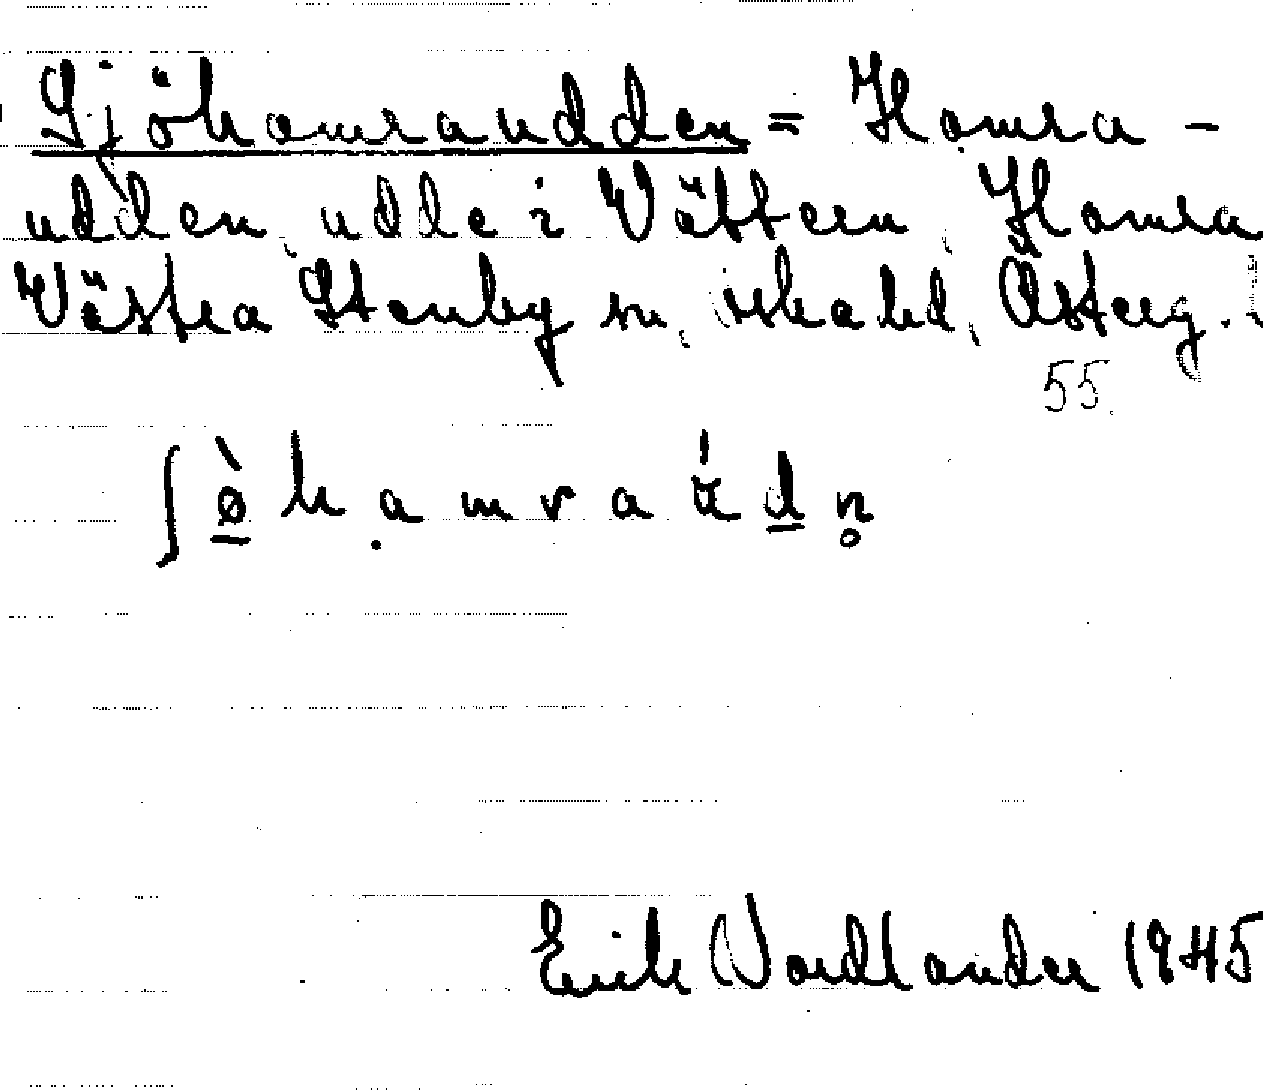 Sjöhamraudden = Hamra-
udden, udde i Vättern, Hamra
Västra Stenby sn, Aska hd, Österg.
55.
Erik Nordlander 1945